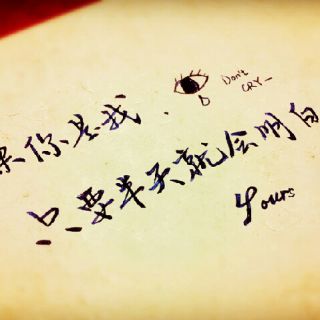 果你是我
Don't
CRY—
只要半天就会明白
yours